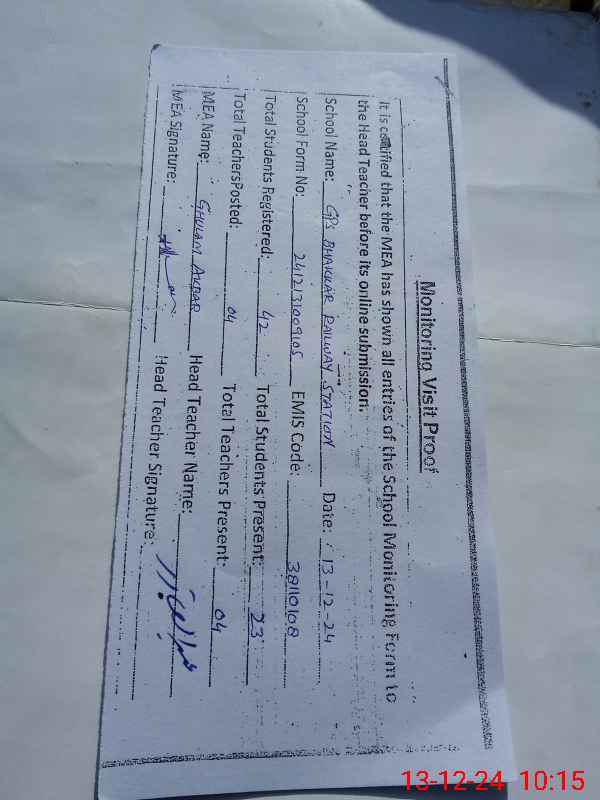 Monitoring Visit Proof
It is certified that the MEA has shown all entries of the School Monitoring Form to
the Head Teacher before its online submission.
School Name: GPS BHAKKAR RAILWAY STATION Date: 13-12-24
School Form No: 2412131009105 EMIS Code: 38110108
Total Students Registered: 42 Total Students Present: 23
Total TeachersPosted: 04 Total Teachers Present: 04
MEA Name: GHULAM AKBAR Head Teacher Name:
MEA Signature: Head Teacher Signature:
13-12-24 10:15